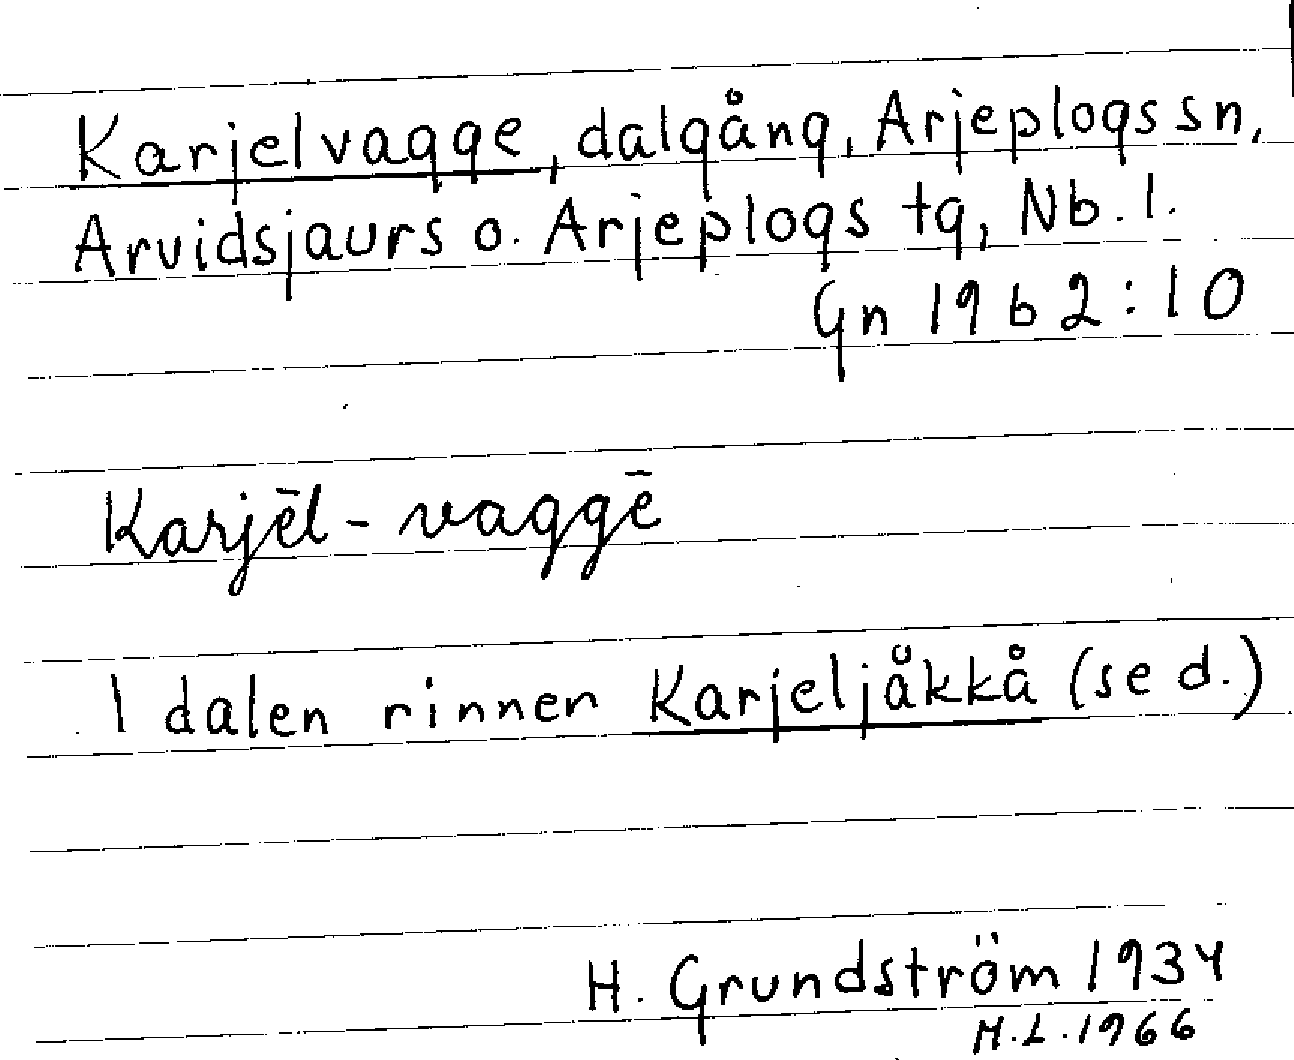 Karjelvagge, dalgång, Arjeplogs sn,
Arvidsjaurs o. Arjeplogs tg, Nb. l.
Gn 1962:10
Karjēl-vaggē
I dalen rinner Karjeljåkkå (se d.)
H. Grundström 1934
M.L. 1966